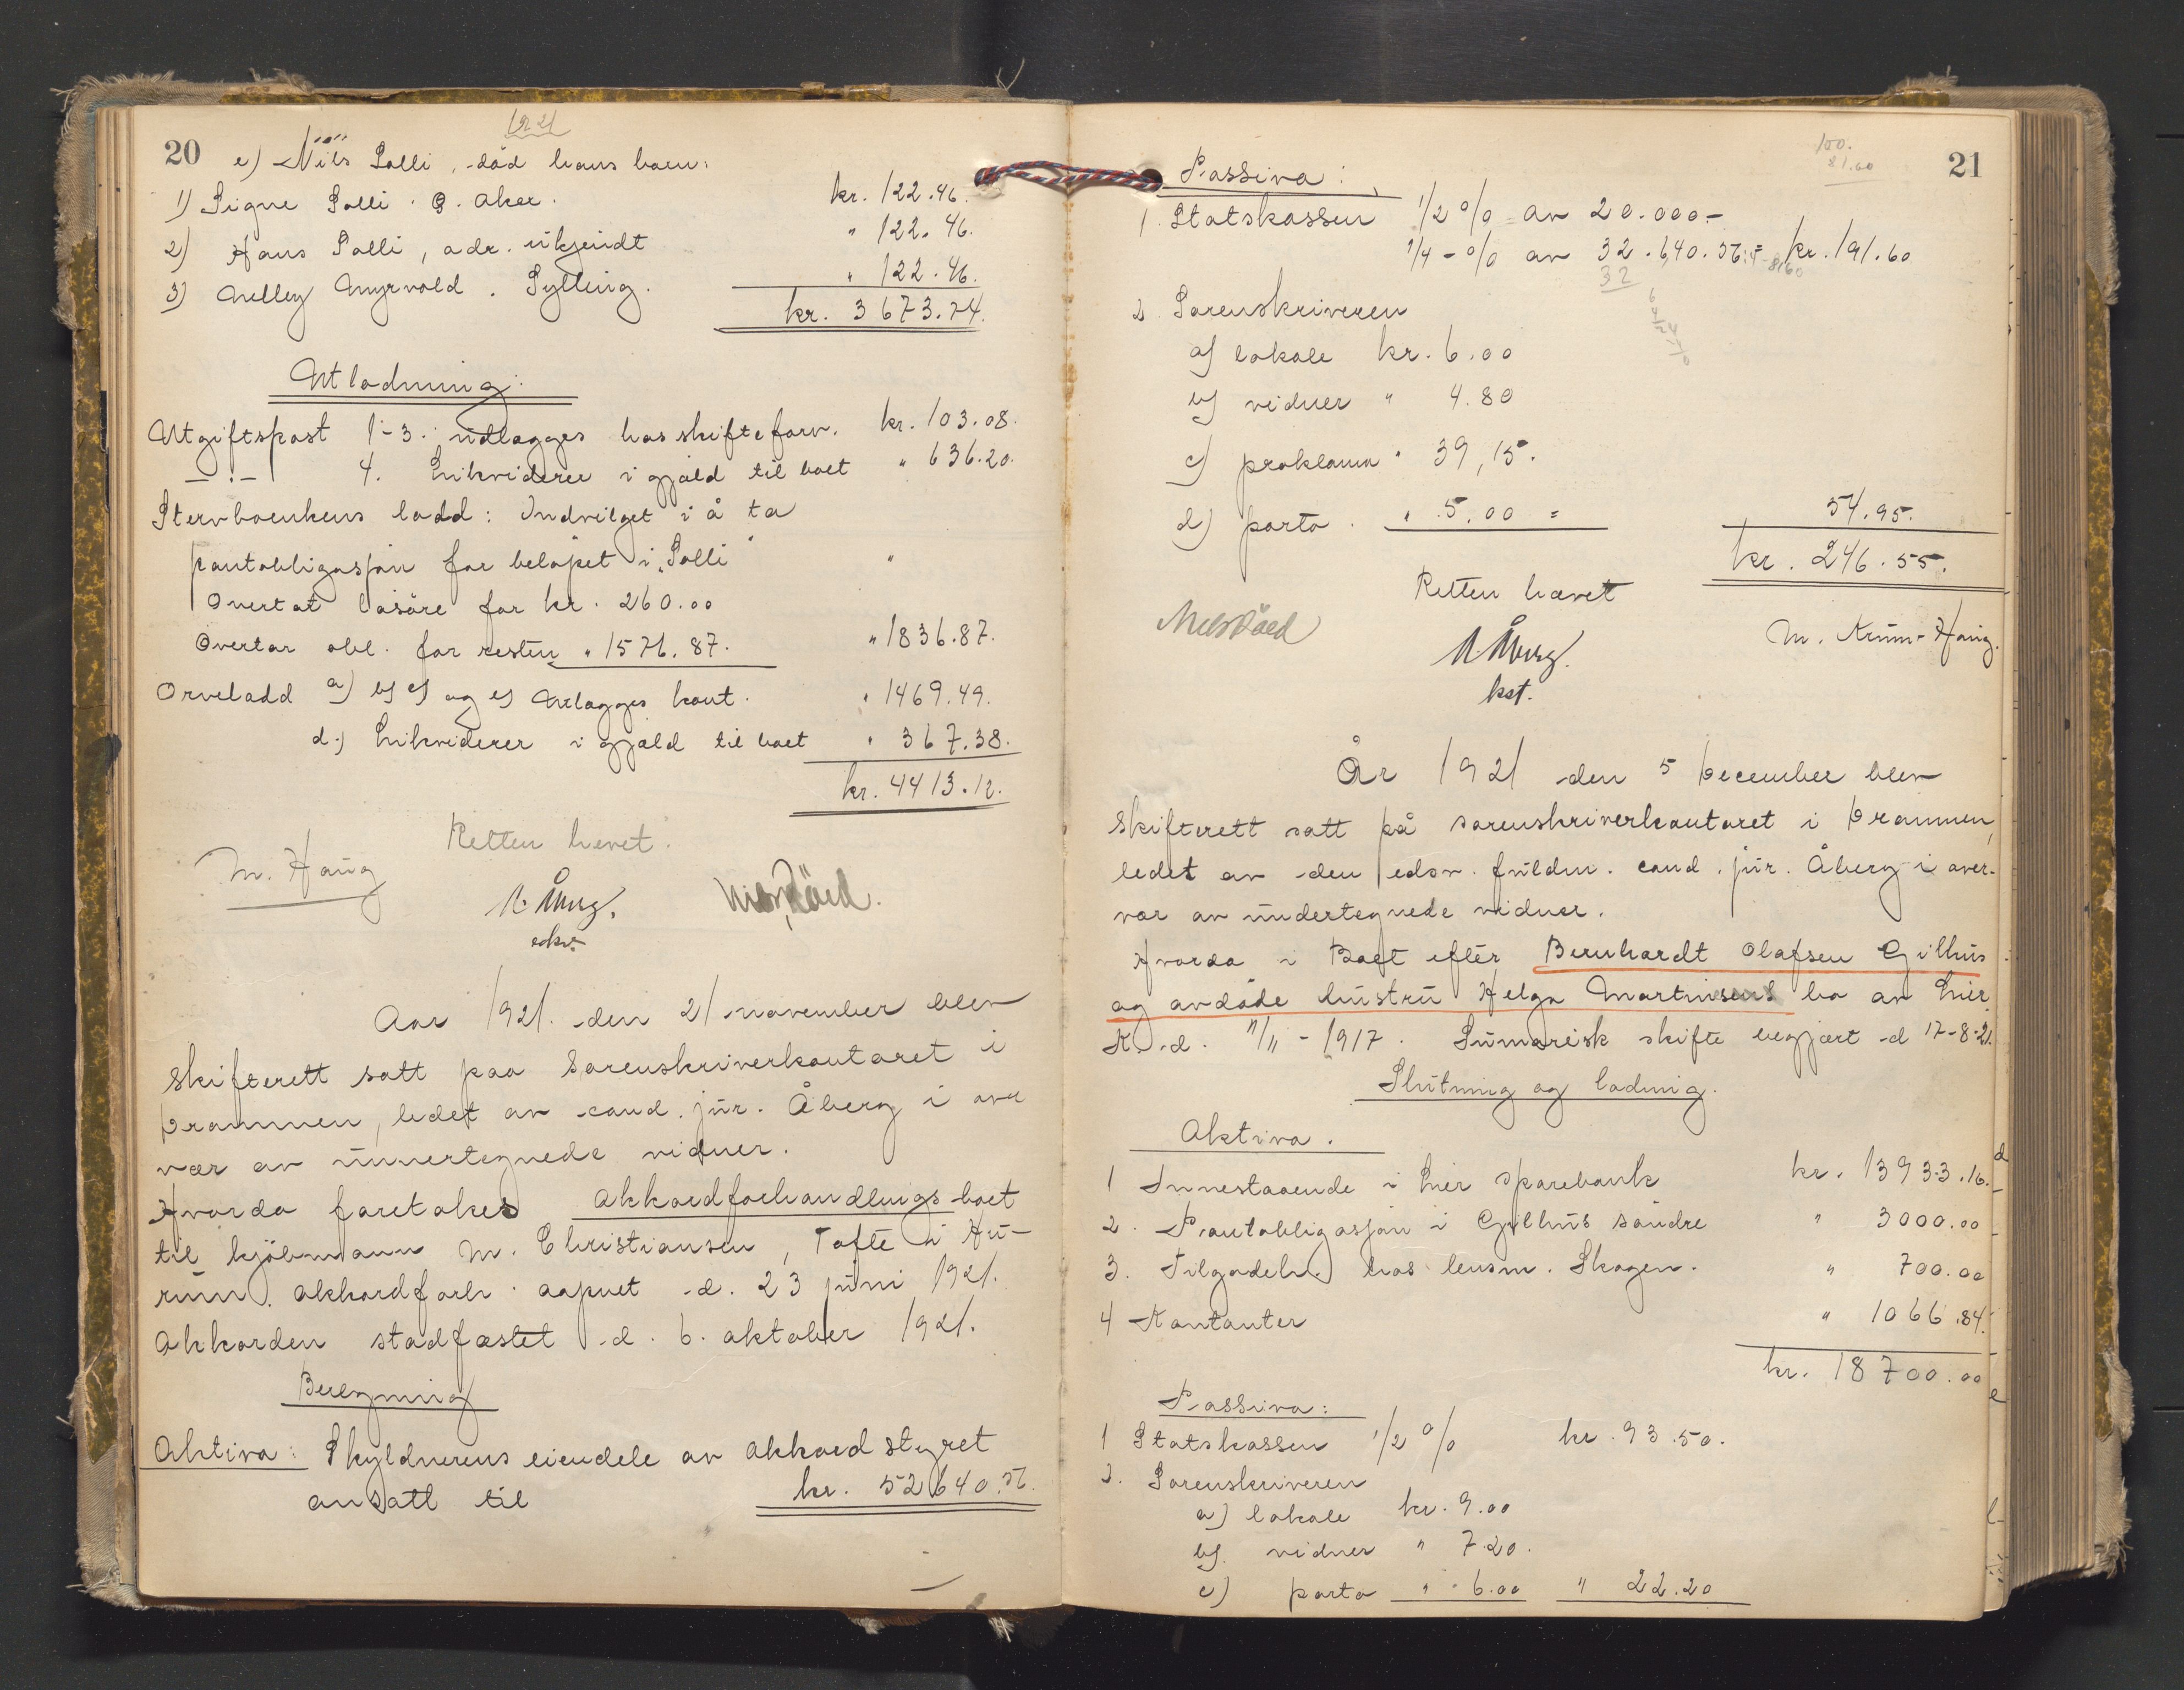 1921
20 e) Nils Solli, död hans barn:
1) Signe Solli. Ø. Aker. kr. 122.46.
2) Hans Solli, adr. ukjendt " 122.46.
3) Nelley Myrvold. Sylling. " 122.46.
kr. 3673.74.
Utlodning.
Utgiftspost 1-3. utlægges hos skifteforv. kr. 103.08.
-"- 4. Likviderer i gjæld til boet " 636.20.
Stervboenkens lodd: Indvilget i å ta
pantobligasjon for belöpet i "Solli" "
Overtat lösöre for kr. 260.00
Overtar obl. for resten " 1576.87. " 1836.87.
Arvelodd a) b) c) og e) Utlægges kont. " 1469.49.
d.) Likviderer i gjæld til boet " 367.38.
kr. 4413.12.
Retten hevet.
M. Haug
N. Åberg.
Aar 1921. den 21 november blev
skifterett satt paa Sorenskriverkontoret i
Drammen, ledet av cand. jur. Åberg i over
vær av unnertegnede vidner.
Hvorda foretokes Akkordforhandlings-boet
til kjöbmann M. Christiansen, Tofte i Hu-
rum. Akkordforh. aapnet d. 23 juni 1921.
Akkorden stadfæstet d. 6. oktober 1921.
Beregning
Aktiva: Skyldnerens eiendele av akkordstyret
ansatt til kr. 52640.56.
100.
81.60
21
Passiva:
1. Statskassen 1/2 % av 20.000.-
1/4 - % av 32.640.56 = kr. 191.60
32
2. Sorenskriveren
a) lokale kr. 6.00
b) vidner " 4.80
c) proklama " 39,15.
d) porto. " 5.00 = 54.95.
kr. 246.55.
Retten hævet
N. Åberg.
kst.
M. Krum-Haug.
År 1921 den 5 December blev
Skifterett satt på sorenskriverkontoret i Drammen,
ledet av den edsv. fuldm. cand. jur. Åberg i over-
vær av undertegnede vidner.
Hvorda i Boet efter Bernhardt Olafsen Gilhus
og avdöde hustru Helga Martinsens bo av Lier
K. d. 11/11 - 1917. Sumarisk skifte begjært d 17-8-21.
Slutning og lodning.
Aktiva.
1 Innestaaende i Lier sparebank kr. 13933.16.
2. Pantobligasjon i Gilhus söndre " 3000.00
3. Tilgodeh. hos lensm. Skogen. " 700.00
4 Kontanter " 1066.84.
kr. 18700.00
Passiva:
1 Statskassen 1/2 % kr. 93.50.
2. Sorenskriveren
a) lokale kr. 9.00
b). vidner " 7.20.
c) porto " 6.00 " 22.20